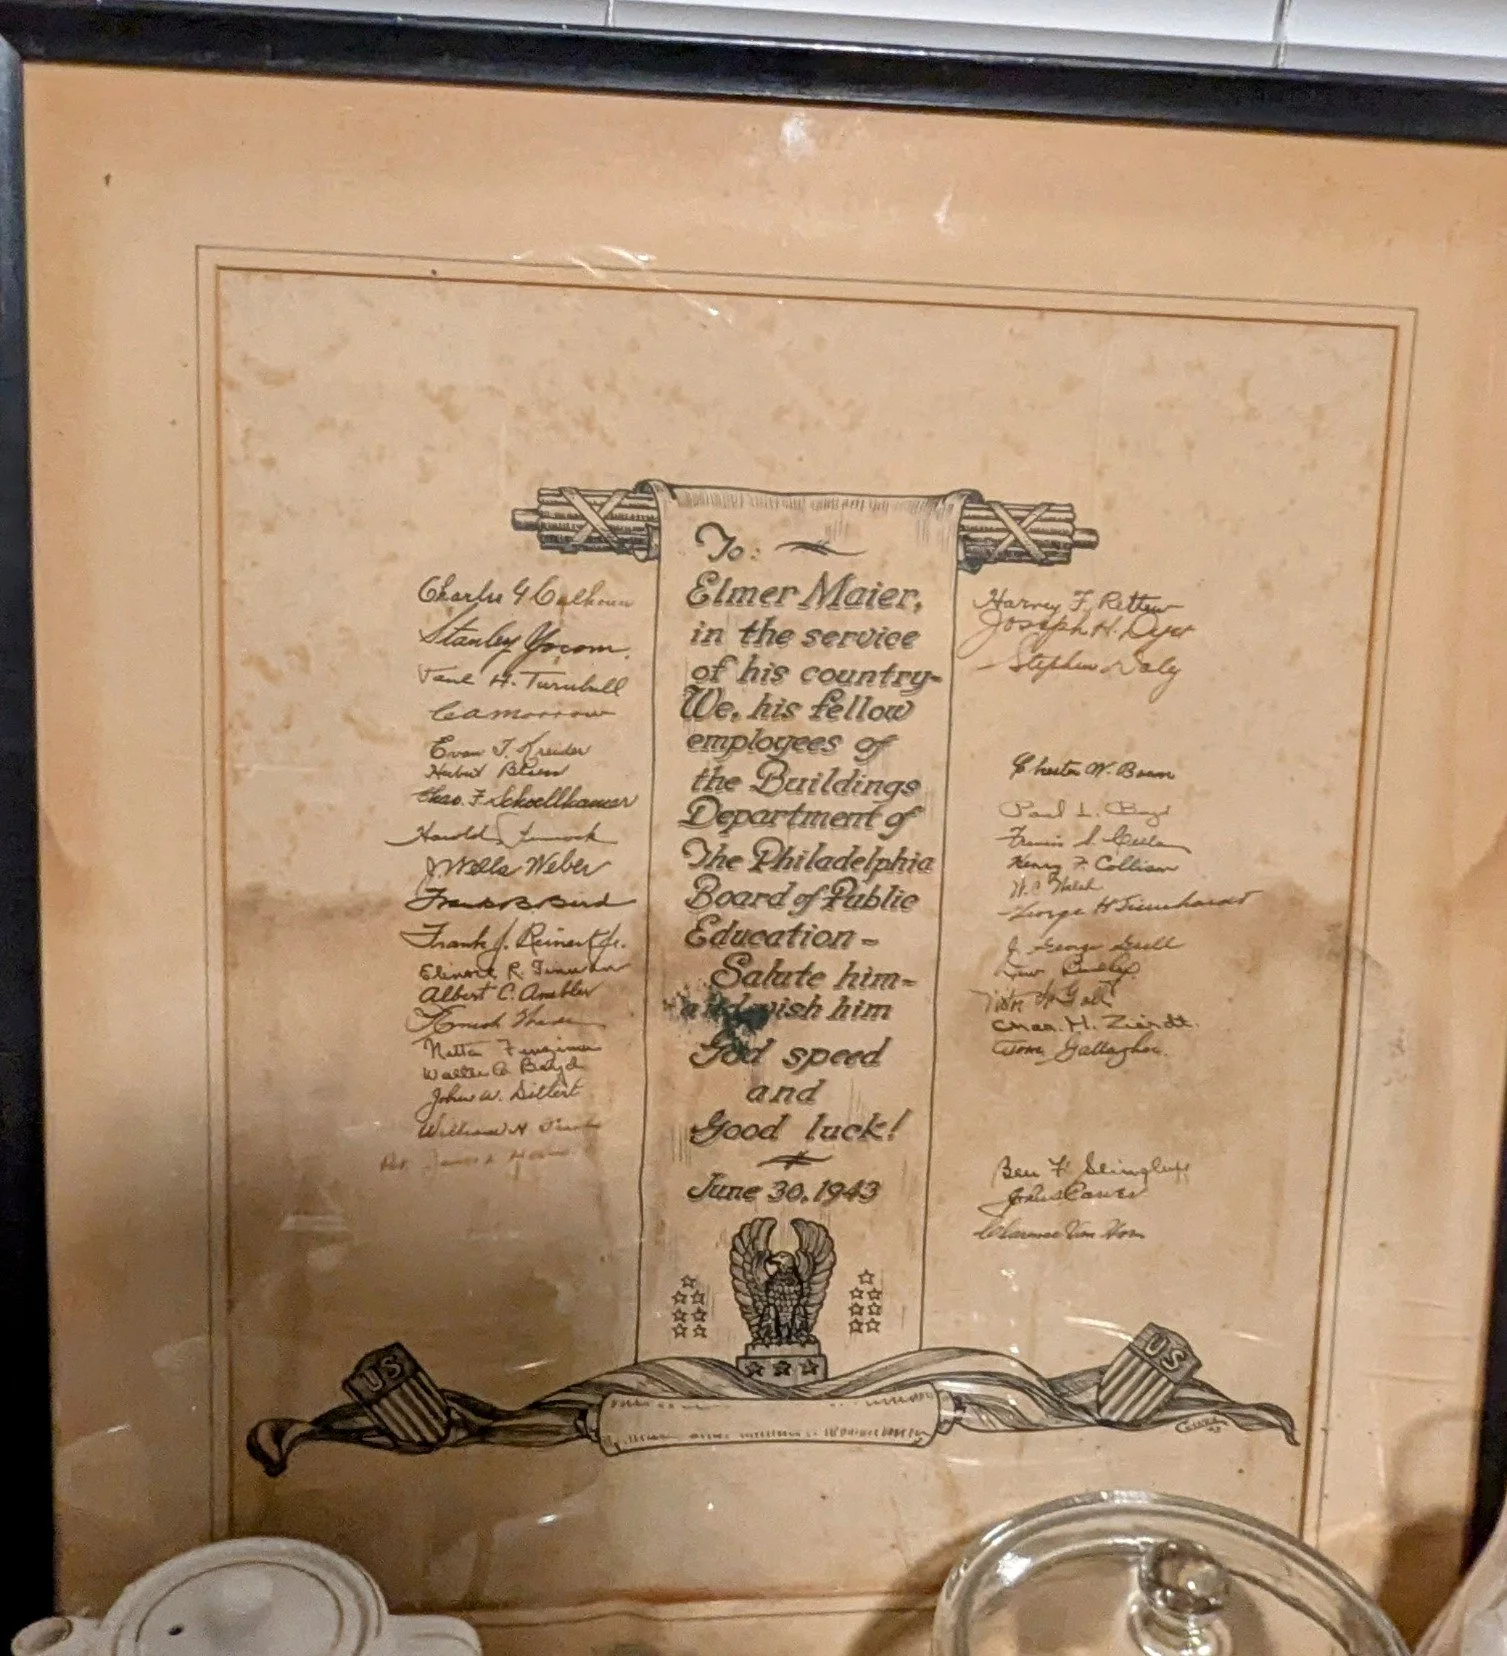 To:
Elmer Maier,
in the service
of his country-
We, his fellow
employees of
the Buildings
Department of
The Philadelphia
Board of Public
Education-
Salute him-
and wish him
God speed
and
Good luck!
June 30, 1943
Charles G Calhoun
Stanley Yocom.
Paul H. Turnbull
Evan T. Kreider
Herbert
Chas. F. Schoellhamer
Harold
J Wells Weber
Frank B Bird
Frank J. Reinert Jr.
Elinore R.
Albert C. Ambler
Netta
Walter A. Boyd
John W. Dittert
William H
Harvey F. Rettew
Joseph H. Dyer
Stephen Daly
Chester W. Baum
Paul L. Boyd
Francis S.
Henry F. Collison
W. C. Walsh
George H
J. George
Chas. H. Ziendt.
Tom Gallagher.
Ben F. Slingluff
John
Clarence Van Horn
US
US